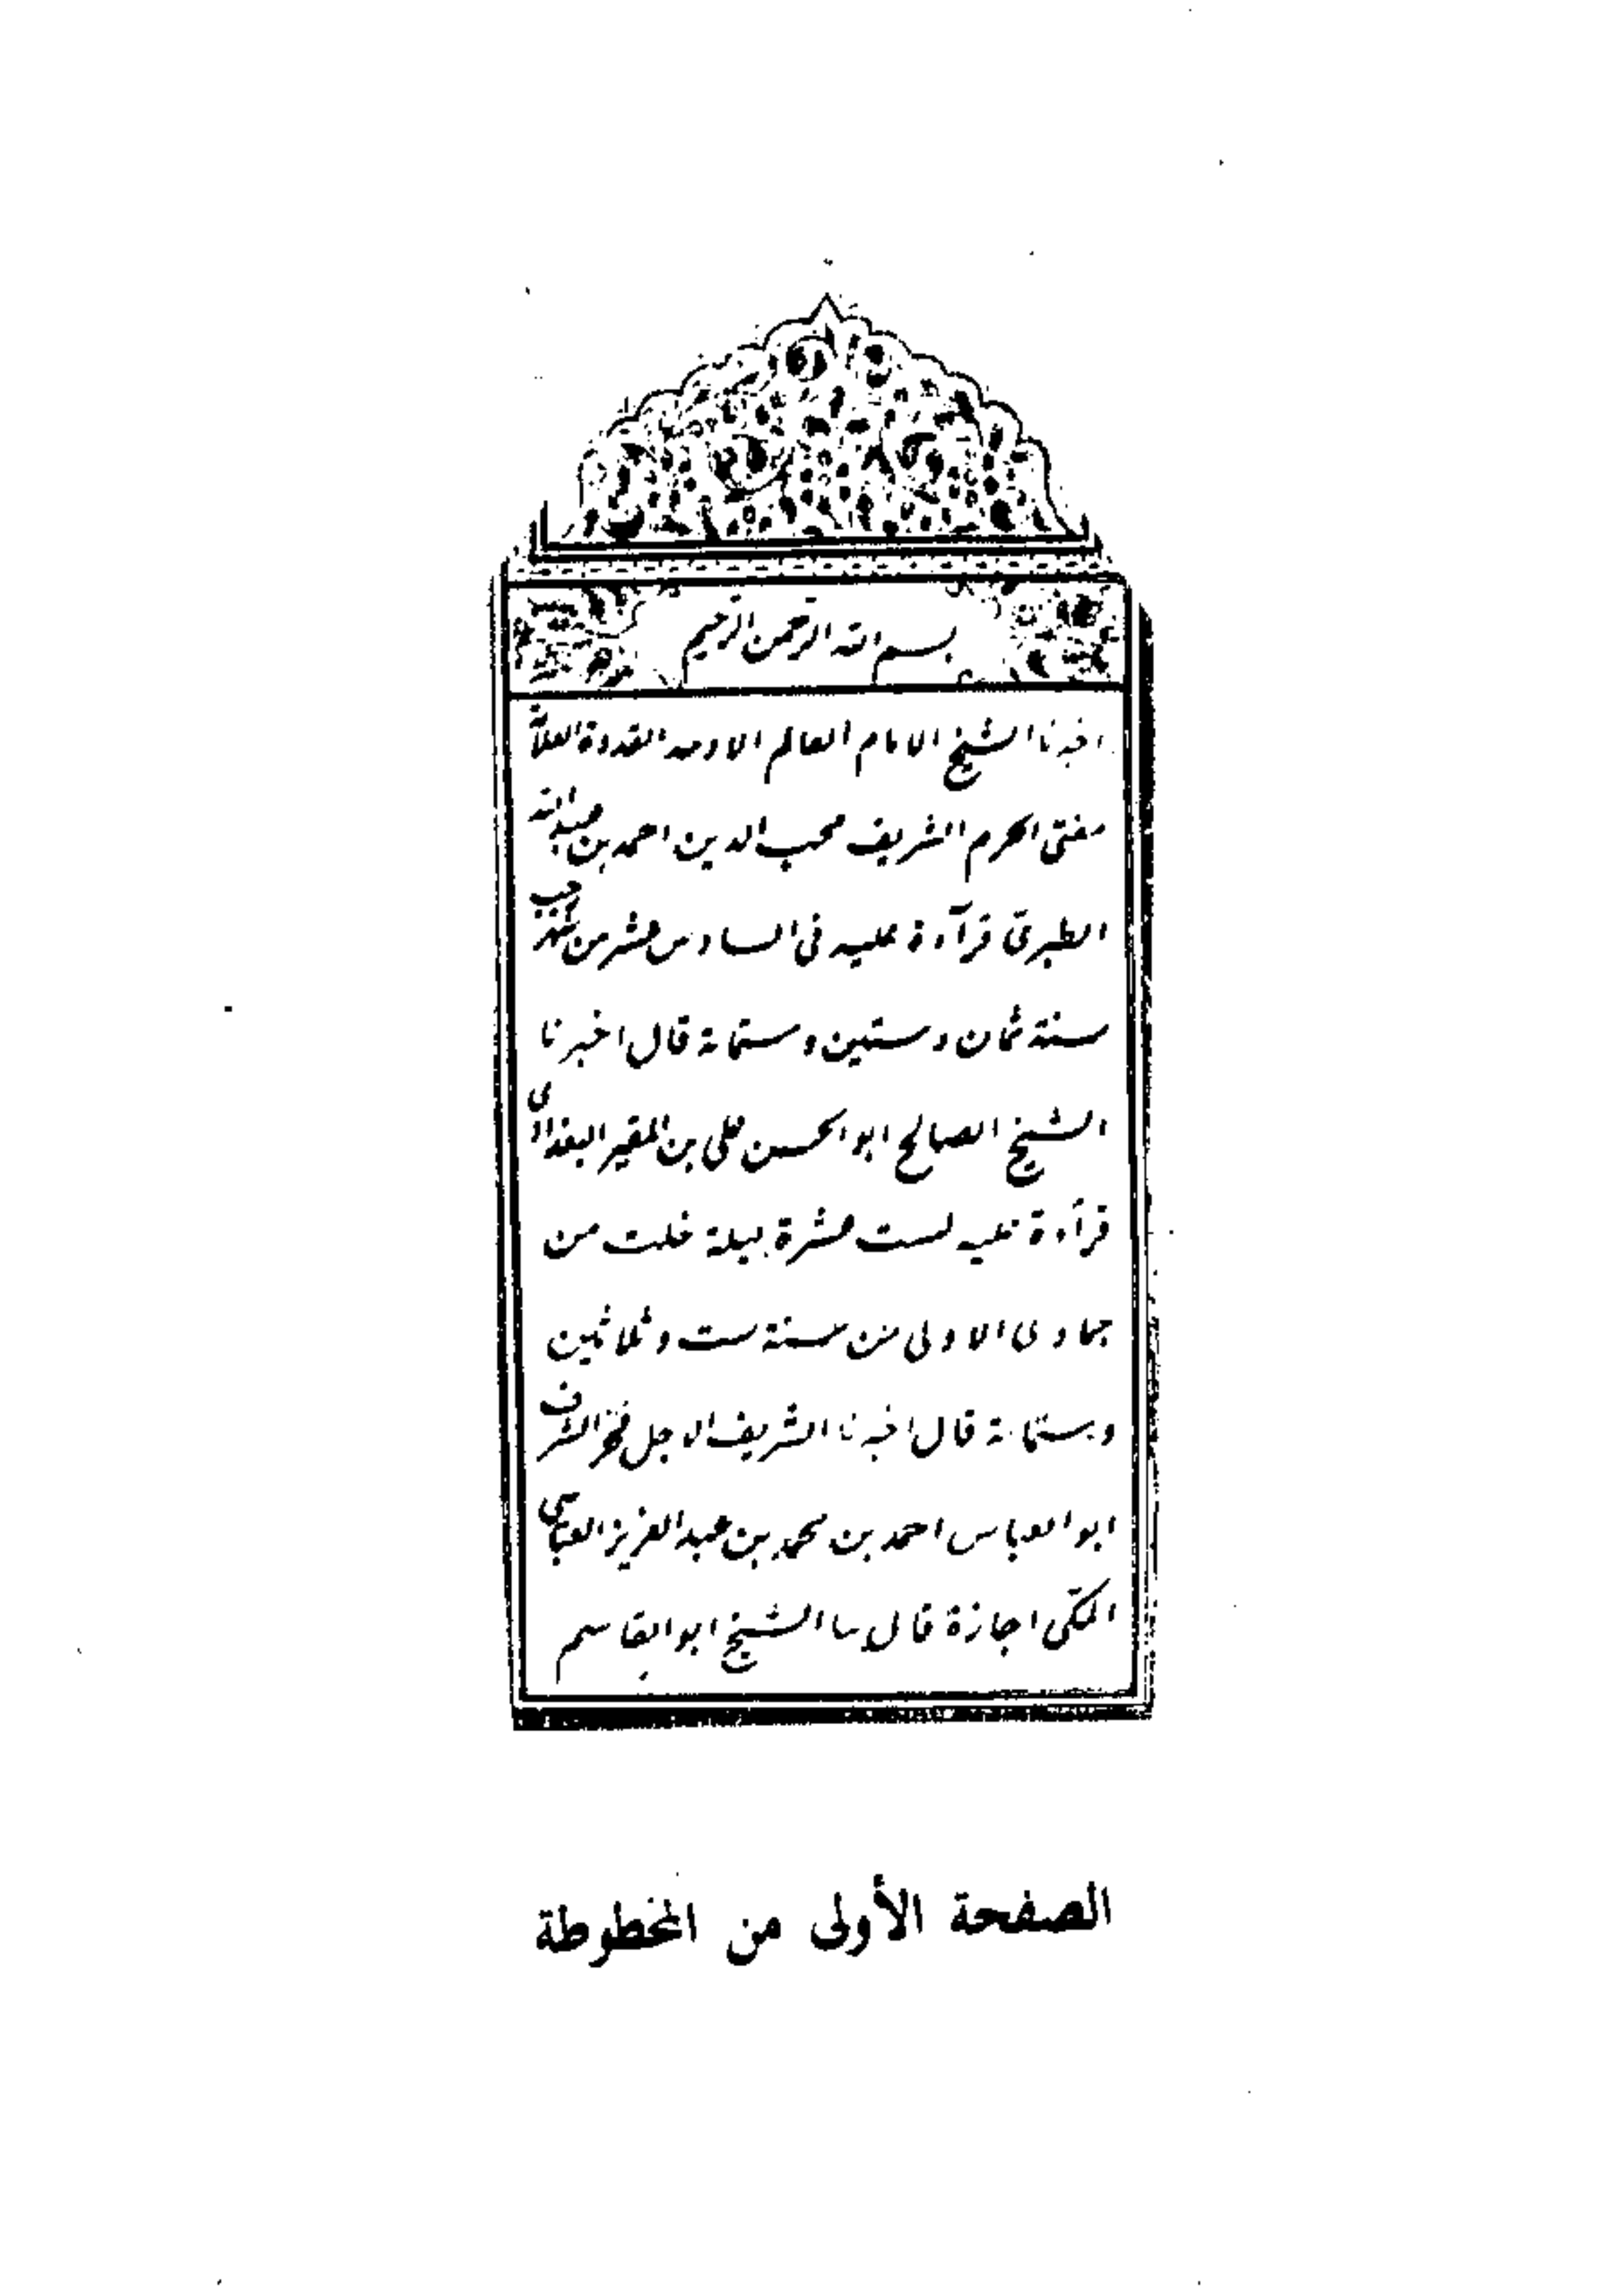 بسم الله الرحمن الرحيم
اخبرنا الشيخ الامام العالم الاوحد القدوة العلامة
مفتى الحرم الشريف محب الدين احمد بن عبد الله
الطبرى قرآءة عليه فى السادس عشر من شهر رجب
سنة ثمان وستين وستماية قال اخبرنا
الشيخ الصالح ابو الحسن على بن المقير البغدادى
قرآءة عليه لست عشرة ليلة خلت من
جمادى الاولى من سنة ست وثلاثين
وستماية قال اخبرنا الشريف الاجل فخر الشرف
ابو العباس احمد بن محمد بن عبد العزيز العباسى
المكى اجازة قال سا الشيخ ابو القاسم
الصفحة الأولى من المخطوطة